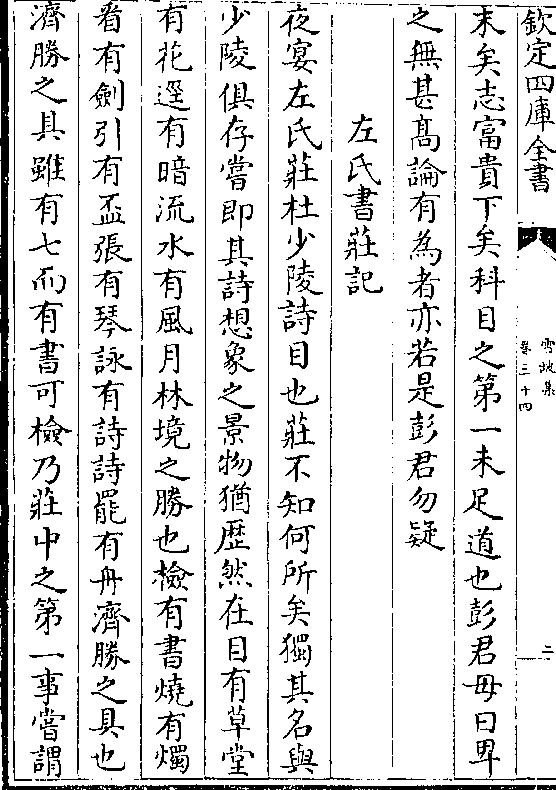 欽定四庫全書
雪坡集
卷三十四
二
末矣志富貴下矣科目之第一未足道也彭君毋曰卑
之無甚髙論有為者亦若是彭君勿疑
左氏書莊記
夜宴左氏莊杜少陵詩目也莊不知何所矣獨其名與
少陵俱存嘗即其詩想象之景物猶歴然在目有草堂
有花逕有暗流水有風月林境之勝也檢有書燒有燭
看有劍引有盃張有琴詠有詩詩罷有舟濟勝之具也
濟勝之具雖有七而有書可檢乃莊中之第一事嘗謂